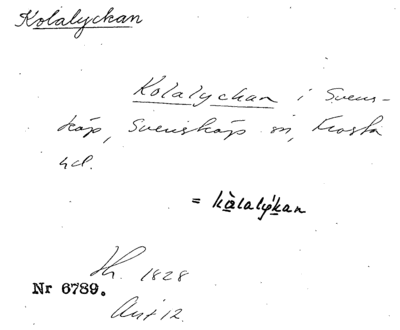 Kolalyckan
Kolalyckan i Svens-
köp, Svensköps sn, Frosta
hd.
= kàlalýkan
1828
Nr 6789.
12.